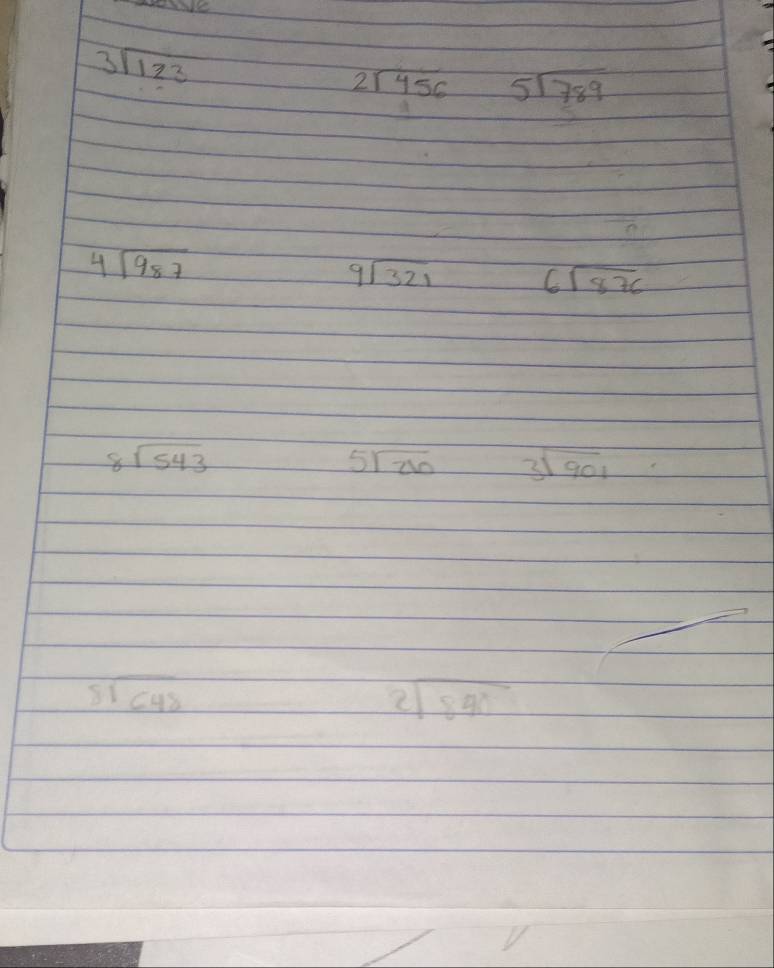 3√123 2√456 5√789
4√987 9√321 6√876
8√543 5√210 3√901
8√648